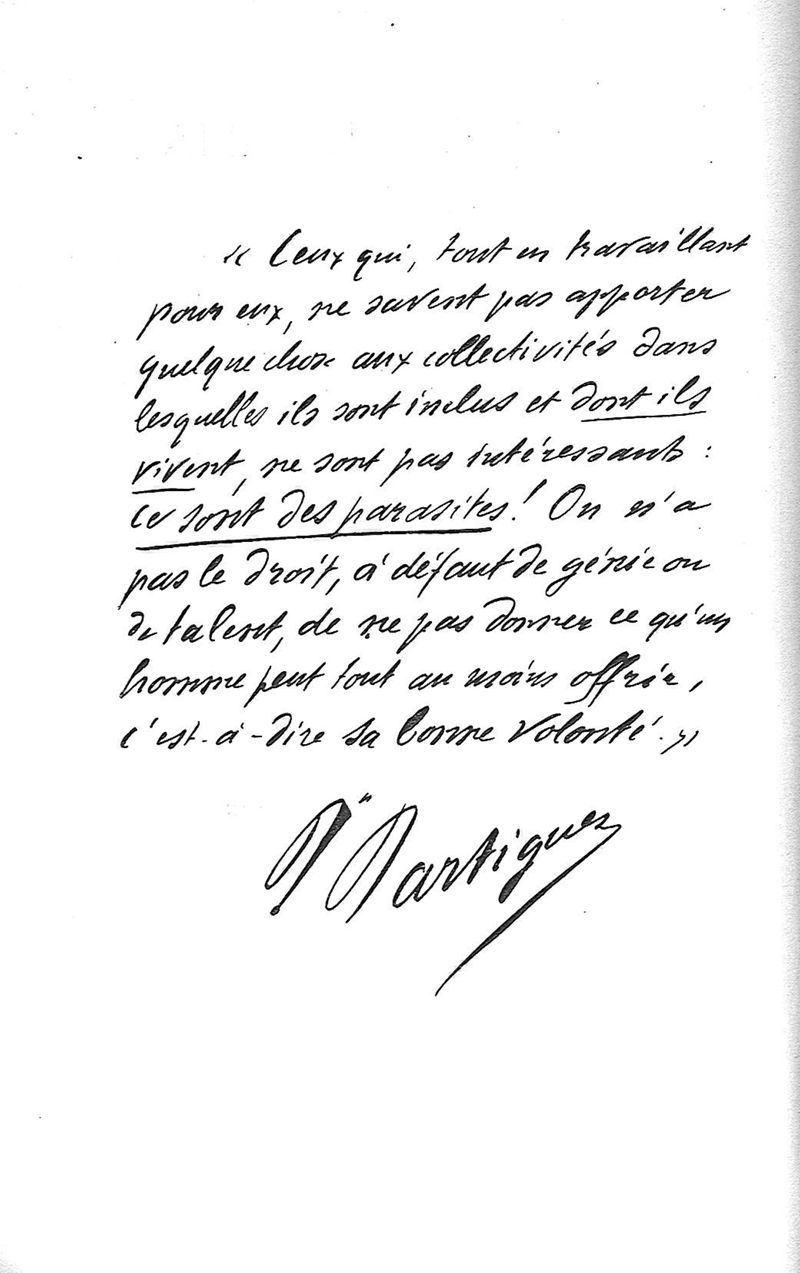 « Ceux qui, tout en travaillant
pour eux, ne savent pas apporter
quelque chose aux collectivités dans
lesquelles ils sont inclus et dont ils
vivent, ne sont pas intéressants :
ce sont des parasites ! On n'a
pas le droit, à défaut de génie ou
de talent, de ne pas donner ce qu'un
homme peut tout au moins offrir,
c'est-à-dire sa bonne volonté. »